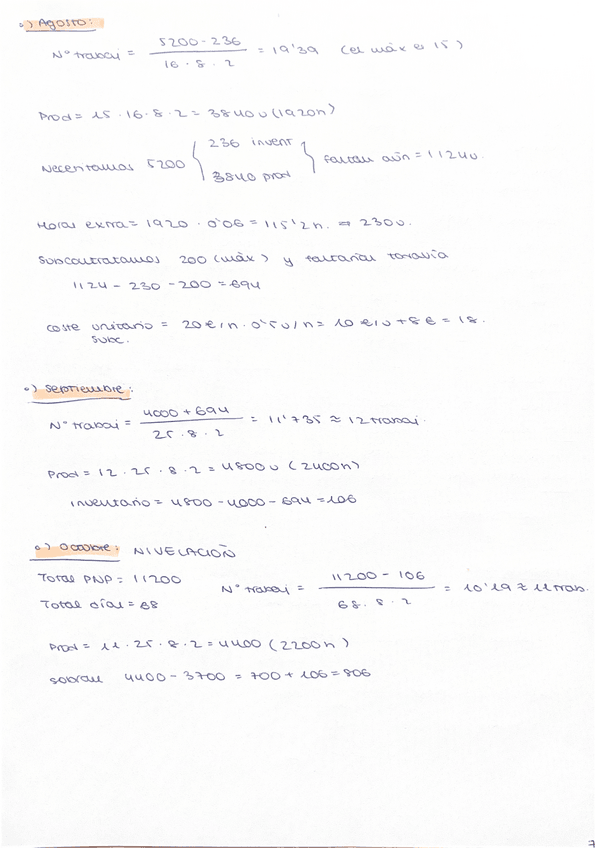 •) Agosto:
Nº trabaj = (5200 - 236) / (16 · 8 · 2) = 19'39 (el máx es 15)
Prod = 15 · 16 · 8 · 2 = 3840 u (1920h)
Necesitamos 5200 { 236 invent
3840 prod } faltan aún = 1124 u.
Horas extra = 1920 · 0'06 = 115'2 h. ⇒ 230 u.
Subcontratamos 200 (máx) y faltarían todavía
1124 - 230 - 200 = 694
Coste unitario = 20€/h · 0'5 u/h = 10€/u + 8€ = 18.
subc.
•) Septiembre:
Nº trabaj = (4000 + 694) / (25 · 8 · 2) = 11'735 ≈ 12 trabaj.
Prod = 12 · 25 · 8 · 2 = 4800 u (2400h)
Inventario = 4800 - 4000 - 694 = 106
•) Octubre: NIVELACIÓN
Total PNP = 11200
Nº trabaj = (11200 - 106) / (68 · 8 · 2) = 10'19 ≈ 11 trab.
Total días = 68
Prod = 11 · 25 · 8 · 2 = 4400 (2200h)
sobran 4400 - 3700 = 700 + 106 = 806
7